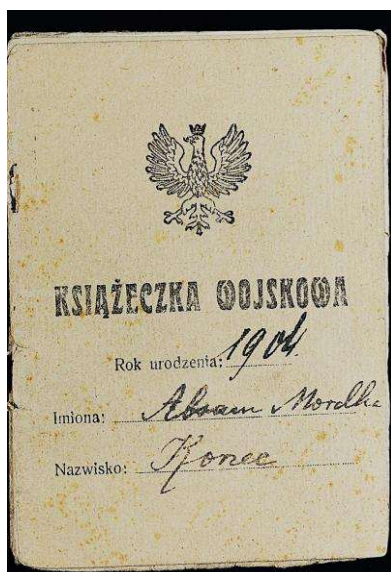 KSIĄŻECZKA WOJSKOWA
Rok urodzenia: 1904.
Imiona: Abram Mordka
Nazwisko: Konec